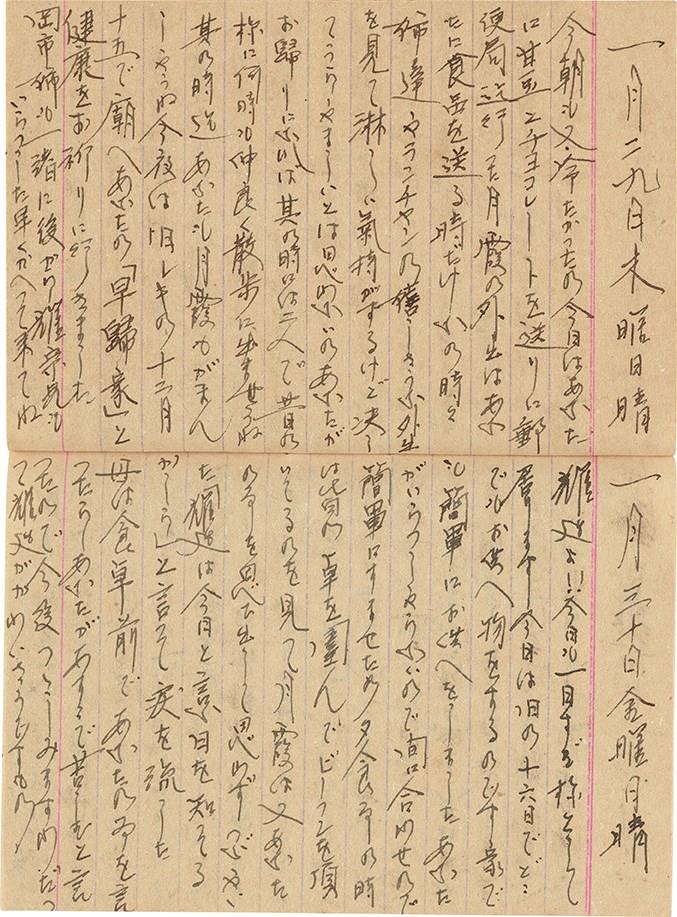 一月二九日木曜日晴
今朝も又冷たかったの今日はあなた
に甘豆とチョコレートを送りに郵
便局迄行った月霞の外出はあな
たに食品を送る時だけなの時々
姉達やランチャンの嬉しさうな外出
を見て淋しい気持がするけど決し
てうらやましいとは思はないのあなたが
お歸りになれば其の時には二人で昔の
様に何時も仲良く散歩に出ませうね
其の時迄あなたも月霞もがまん
しませうね今夜は旧レキの十二月
十五で廟へあなたの「早歸家」と
健康をお祈りに行ってきました
岡市姉も一緒に後から耀宗兄も
いらっした早くかへって来てね
一月三十日金曜日晴
耀廷よ!!今日も一日すぎ様として
居ります今日は旧の十六日でど…
でもお供へ物をするのです家で
も簡単にお供へをしましたあなた
がいらっしゃらないので間に合わせで
簡単にすませたの夕食の時
は皆の卓を囲んでビーフンを頂
いてるのを見て月霞は又あなた
の事を思ひ出して思はず
た「耀廷は今日と言ふ日を知ってる
かしら」と言って涙を流した
母は食卓前であなたの事を言
ったらしあなたがあまで苦しむと言
ったので今後つつしみますわだっ
て耀廷がかわいさうですもの